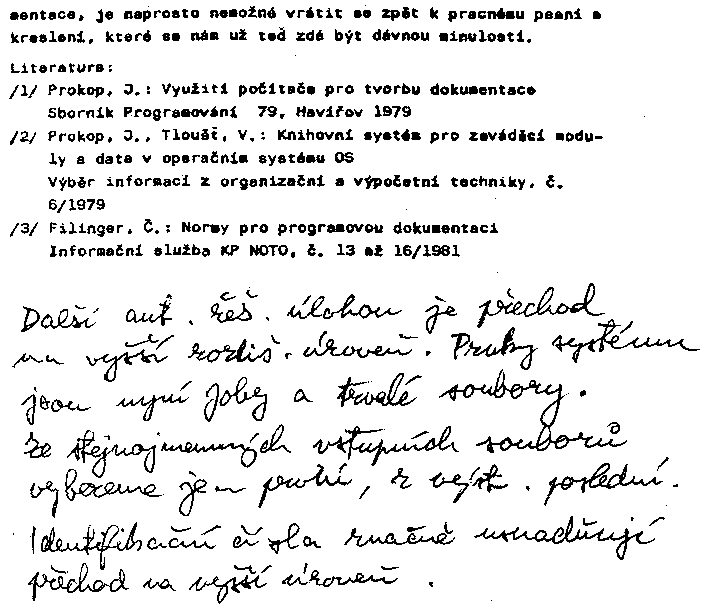 mentace, je naprosto nemožné vrátit se zpět k pracnému psaní a
kreslení, které se nám už teď zdá být dávnou minulostí.
Literatura:
/1/ Prokop, J.: Využití počítače pro tvorbu dokumentace
Sborník Programování 79, Havířov 1979
/2/ Prokop, J., Tloušť, V.: Knihovní systém pro zaváděcí modu-
ly a data v operačním systému OS
Výběr informací z organizační a výpočetní techniky, č.
6/1979
/3/ Filinger, Č.: Normy pro programovou dokumentaci
Informační služba KP NOTO, č. 13 až 16/1981
Další aut. řeš. úlohou je přechod
na vyšší rozliš. úroveň. Prvky systému
jsou nyní joby a trvalé soubory.
Ze stejnojmenných vstupních souborů
vybereme jen první, z výst. poslední.
Identifikační čísla značně usnadňují
přechod na vyšší úroveň.